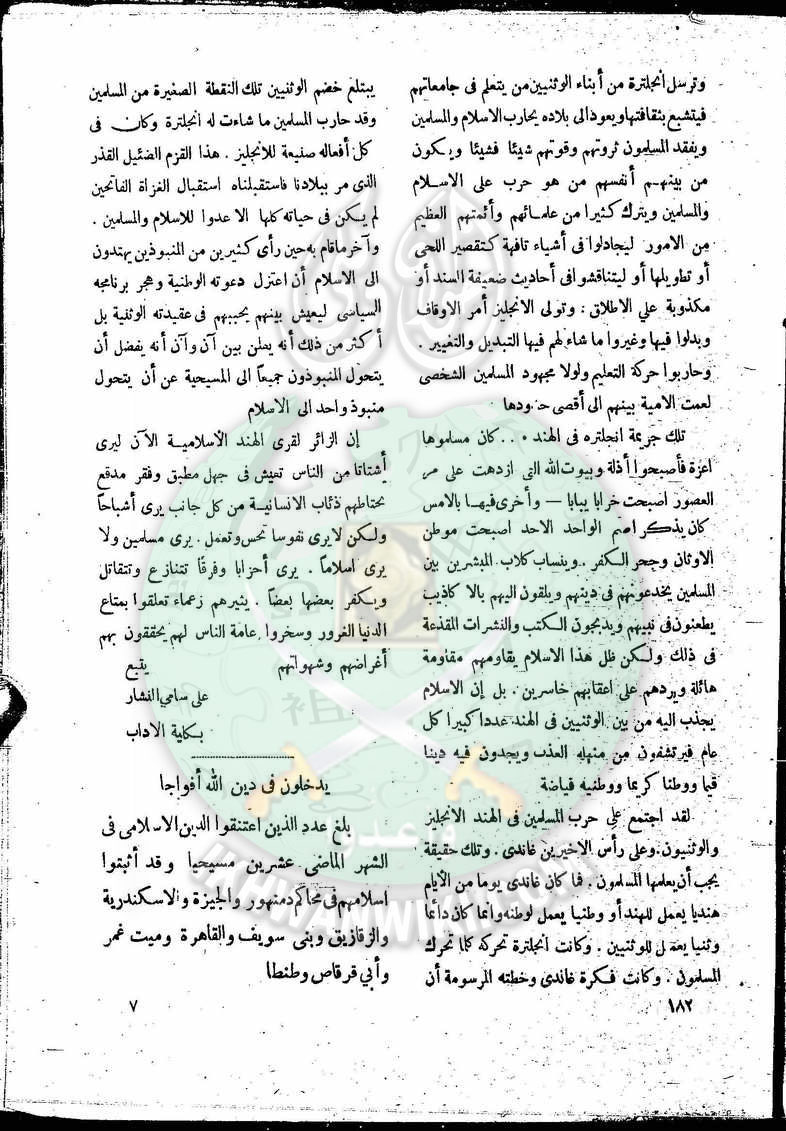 وترسل انجلترة من أبناء الوثنيين من يتعلم فى جامعاتهم
فيتشبع بثقافتها ويعود الى بلاده يحارب الاسلام والمسلمين
ويفقد المسلمون ثروتهم وقوتهم شيئا فشيئا ويكون
من بينهم أنفسهم من هو حرب على الاسلام
والمسلمين ويترك كثيرا من علمائهم وأئمتهم العظيم
من الامور ليجادلوا فى أشياء تافهة كتقصير اللحى
أو تطويلها أو ليتناقشوا فى أحاديث ضعيفة السند أو
مكذوبة على الاطلاق : وتولى الانجليز أمر الاوقاف
وبدلوا فيها وغيروا ما شاء لهم فيها التبديل والتغيير .
وحاربوا حركة التعليم ولولا مجهود المسلمين الشخصى
لعمت الامية بينهم الى أقصى حدودها
تلك جريمة انجلتره فى الهند .. كان مسلموها
اعزة فأصبحوا أذلة وبيوت الله التى ازدهت على مر
العصور اصبحت خرابا يبابا — وأخرى فيها بالامس
كان يذكر اسم الواحد الاحد اصبحت موطن
الاوثان وجحر الكفر .. وينساب كلاب المبشرين بين
المسلمين يخدعونهم فى دينهم ويلقون اليهم بالاكاذيب
يطعنون فى نبيهم ويدبجون الكتب والنشرات المقذعة
فى ذلك ولكن ظل هذا الاسلام يقاومهم مقاومة
هائلة ويردهم على اعقابهم خاسرين . بل إن الاسلام
يجذب اليه من بين الوثنيين فى الهند عددا كبيرا كل
عام فيرتشفون من منهله العذب ويجدون فيه دينا
قيما ووطنا كريما ووطنيه فياضة
لقد اجتمع على حرب المسلمين فى الهند الانجليز
والوثنيون وعلى رأس الاخيرين غاندى . وتلك حقيقة
يجب أن يعلمها المسلمون . فما كان غاندى يوما من الأيام
هنديا يعمل للهند أو وطنيا يعمل لوطنه وانما كان دائما
وثنيا يعمل للوثنيين . وكانت انجلترة تحركه كلما تحرك
المسلمون . وكانت فكرة غاندى وخطته المرسومة أن
١٨٢
يبتلع خضم الوثنيين تلك النقطة الصغيرة من المسلمين
وقد حارب المسلمين ما شاءت له انجلترة وكان فى
كل أفعاله صنيعة للانجليز . هذا القزم الضئيل القذر
الذى مر ببلادنا فاستقبلناه استقبال الغزاة الفاتحين
لم يكن فى حياته كلها الا عدوا للاسلام والمسلمين .
وآخر ماقام به حين رأى كثيرين من المنبوذين يهتدون
الى الاسلام أن اعتزل دعوته الوطنية وهجر برنامجه
السياسى ليعيش بينهم يحببهم فى عقيدته الوثنية بل
أكثر من ذلك أنه يعلن بين آن وآن أنه يفضل أن
يتحول المنبوذون جميعاً الى المسيحية عن أن يتحول
منبوذ واحد الى الاسلام
إن الزائر لقرى الهند الأسلامية الآن ليرى
أشتاتا من الناس تعيش فى جهل مطبق وفقر مدقع
تحتاطهم ذئاب الانسانية من كل جانب يرى أشباحاً
ولكن لا يرى نفوسا تحس وتعمل . يرى مسلمين ولا
يرى اسلاماً . يرى أحزابا وفرقاً تتنازع وتتقاتل
ويكفر بعضها بعضاً . يثيرهم زعماء تعلقوا بمتاع
الدنيا الغرور وسخروا عامة الناس لهم يحققون بهم
أغراضهم وشهواتهم
يتبع
على سامى النشار
بكلية الاداب
يدخلون فى دين الله أفواجا
بلغ عدد الذين اعتنقوا الدين الاسلامى فى
الشهر الماضى عشرين مسيحيا وقد أثبتوا
اسلامهم فى محاكم دمنهور والجيزة والاسكندرية
والزقازيق وبنى سويف والقاهرة وميت غمر
وأبي قرقاص وطنطا
٧
وأعدوا
IKHWANWIKI.COM